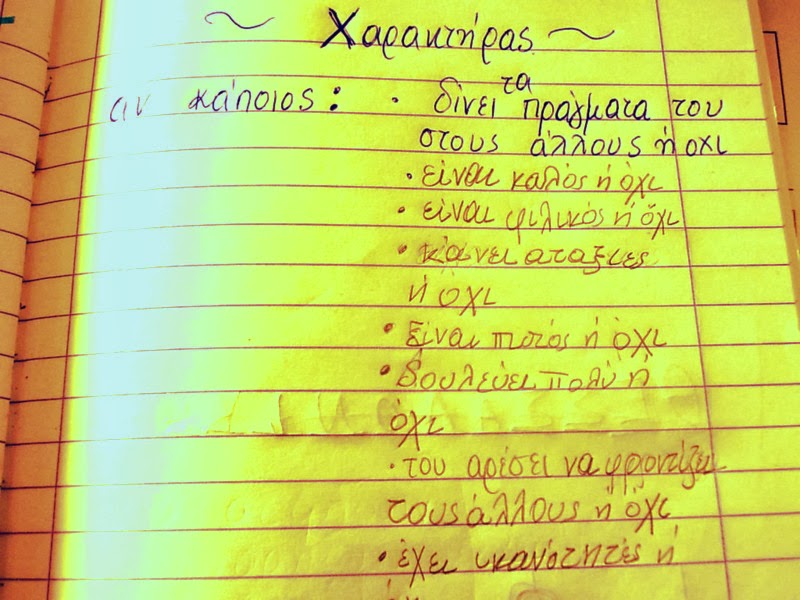 ~ Χαρακτήρας ~
αν κάποιος: · δίνει τα πράγματα του
στους άλλους ή οχι
· είναι καλός ή όχι
· είναι φιλικός ή όχι
· κάνει αταξιες
ή όχι
· είναι πιστός ή όχι
· δουλεύει πολύ ή
όχι
· του αρέσει να φροντίζει
τους άλλους ή όχι
· έχει ικανότητές ή